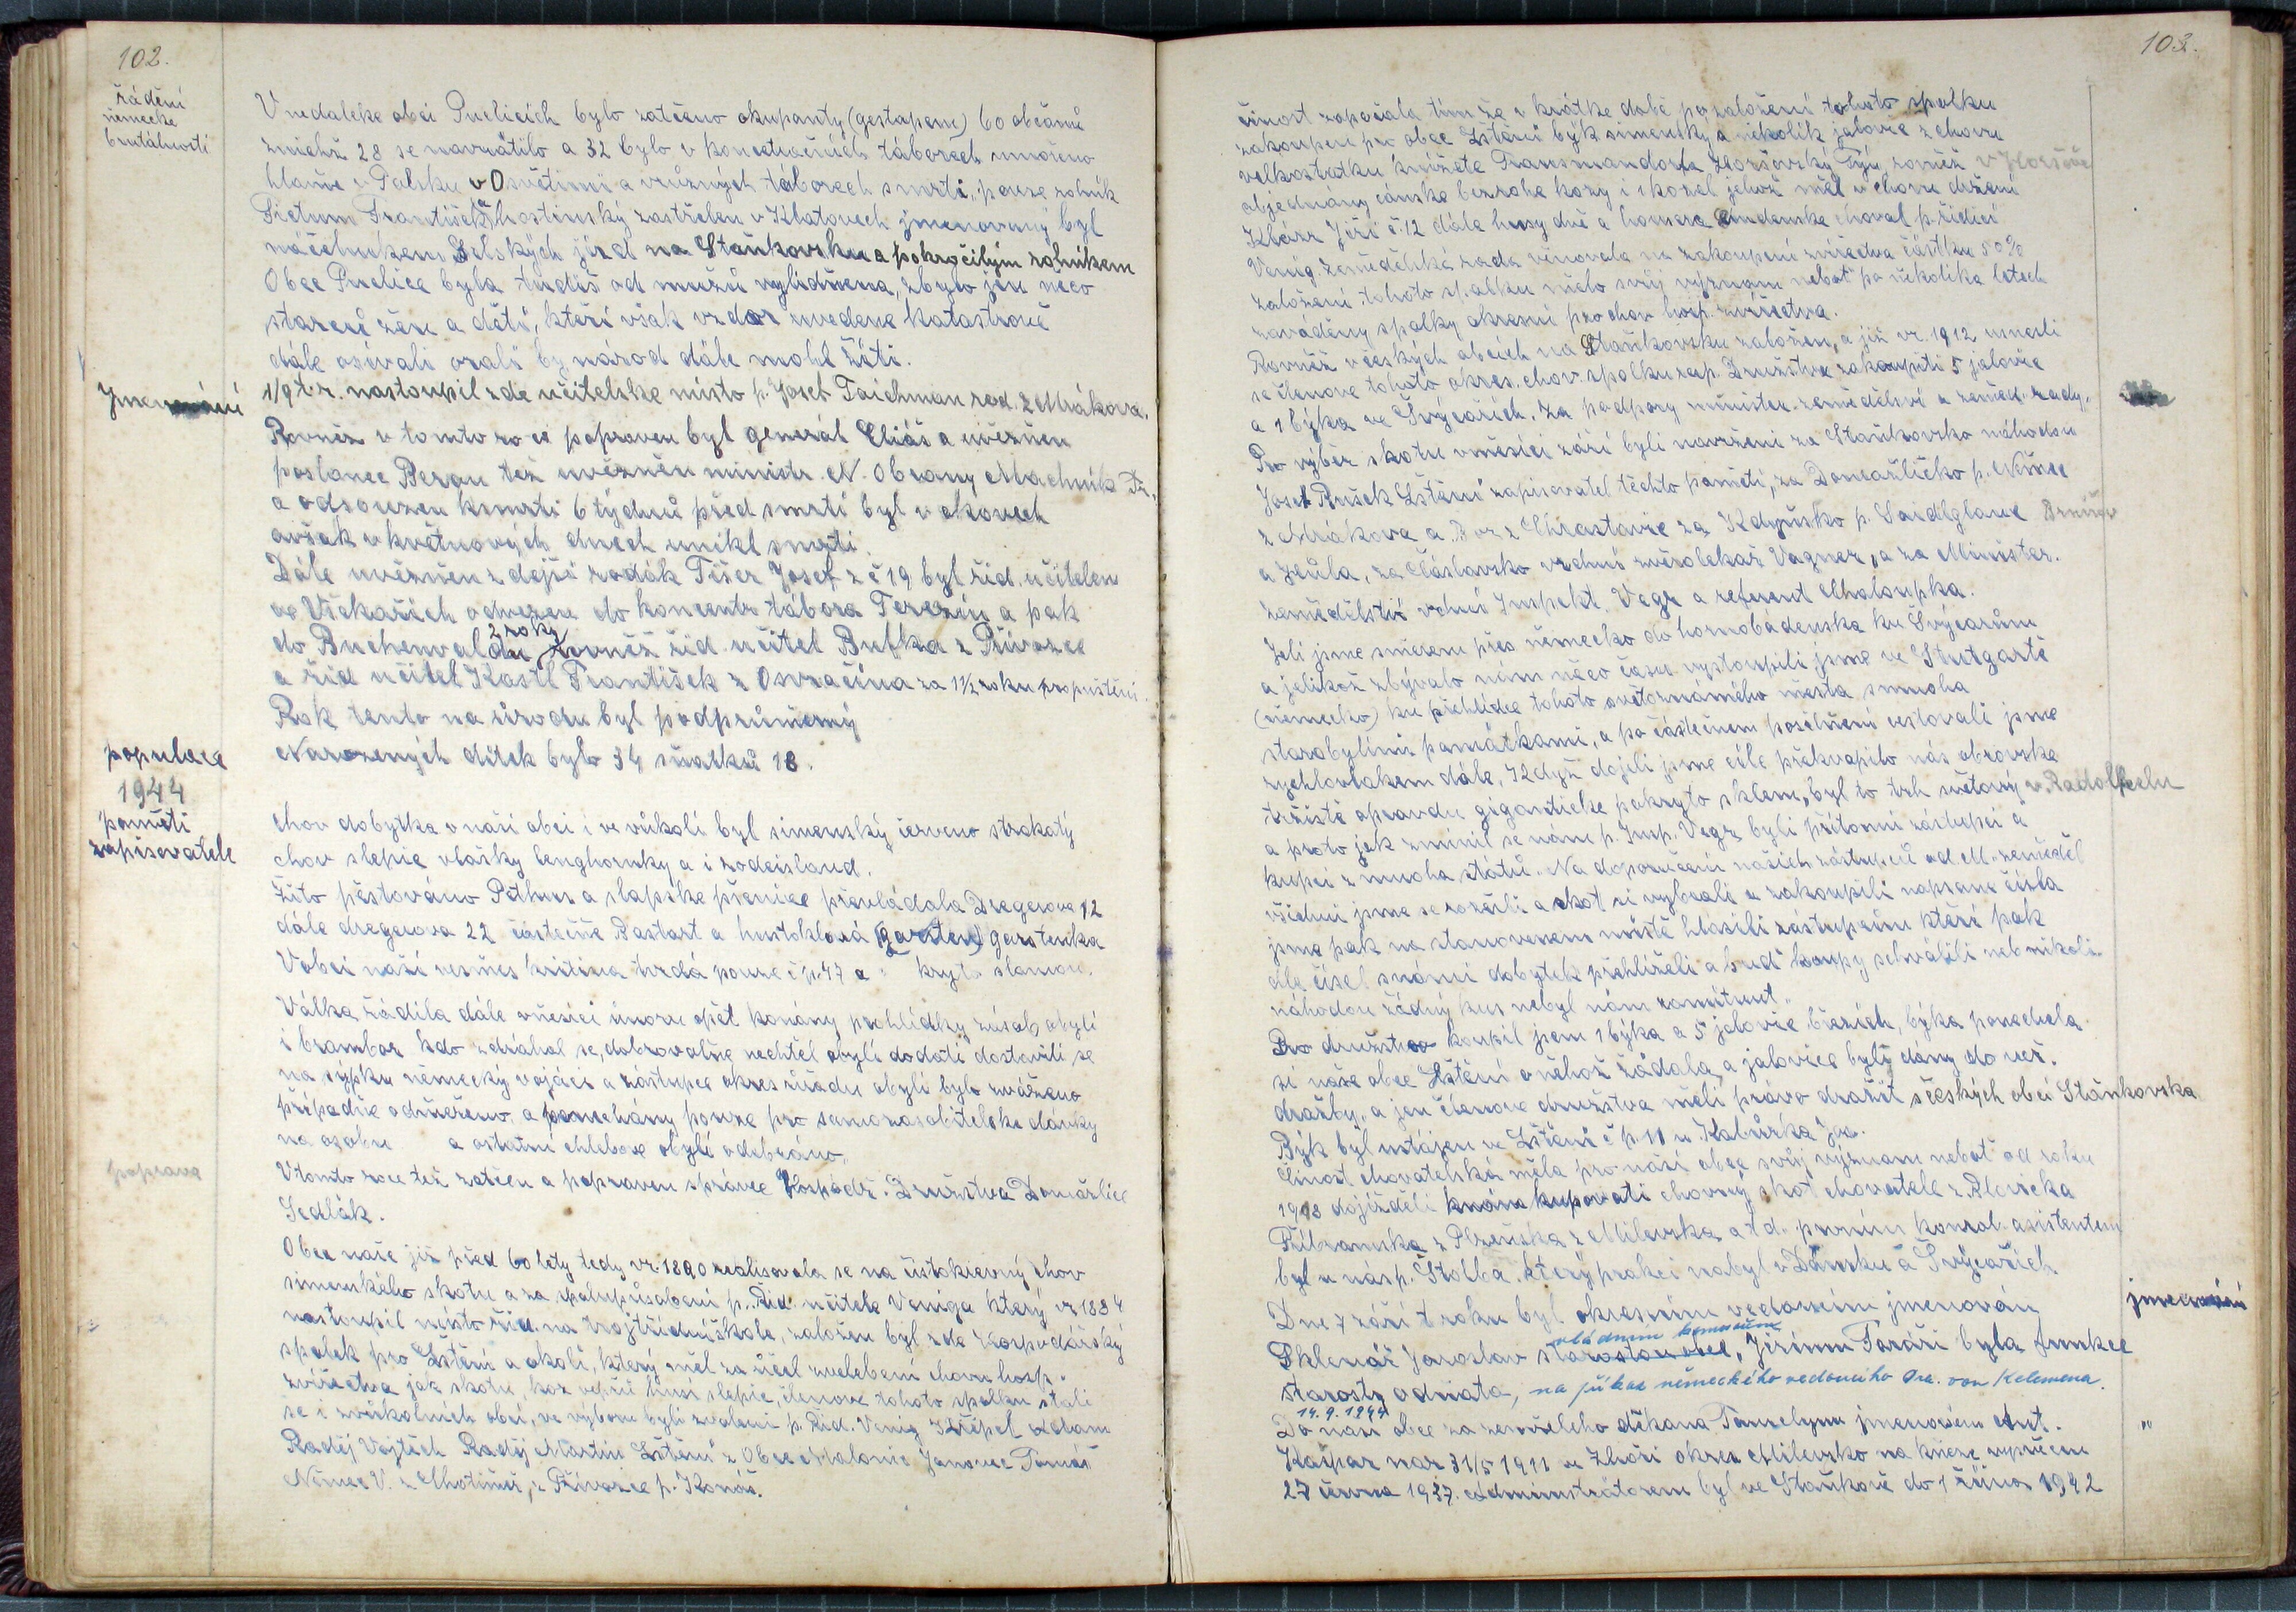 102.
řádění
německe
brutálnosti
V nedaleke obci Puclicích bylo zatčeno okupanty (gestapem) 60 občanů
z nichž 28 se navrátilo a 32 bylo v koncetračních táborech umořeno
hlavně v Polsku v Osvětimi a v různých táborech smrti, pouze rolník
František hostinský zastřelen v Klatovech jmenovaný byl
náčelníkem Selských jízd na Staňkovsku a pokročilým rolníkem
Obec Puclice byla tudíž od mužů vylidněna, zbylo jen něco
starců žen a dětí, kteří však vzdor uvedene katastrově
dále osívali orali by národ dále mohl žíti.
Jmenování
1/9 t.r. nastoupil zde učitelske místo p. Josef Taichman rod. z Mrákova.
Rovněž v tomto roce popraven byl generál Eliáš a uvězněn
poslanec Beran tež uvězněn ministr N. Obrany Machník Fr.
a odsouzen k smrti 6 týdnů před smrtí byl v okovech
avšak v květnových dnech unikl smrti.
Dále uvězněn zdejší rodák Tišer Josef z č 19 byl řid. učitelem
ve Všekařích odvezen do koncentr tábora Terezín a pak
do Buchenvaldu 2 roky rovněž řid. učitel Bufka z Přívozce
a řid učitel Kastl František z Osvračína za 1½ roku propuštěni.
Rok tento na úrodu byl podprůměrný
populace
Narozených dítek bylo 34 sňatků 18.
1944
paměti
zapisovatele
chov dobytka v naší obci i ve vůkolí byl simenský červeno strakatý
chov slepic vlašky lenghornky a i rodeisland.
Žito pěstováno Petkus a slapske pšenice převládala Dregerova 12
dále dregerova 22 částečně Bastart a hustoklasá (garsten) garstenka
V obci naší vesměs kritina tvrdá pouze čp. 47 a " kryto slamou.
Válka řádila dále v měsíci únoru opět konány prohlídky zásob obylí
i brambor kdo zdráhal se, dobrovolně nechtěl obylí dodati dostavili se
na sýpku německý vojáci a zástupce okres úřadu obylí bylo zváženo
případně odměřeno a ponechány pouze pro samozasobitelske dávky
na osobu a ostatní chlebove obylí odebráno.
poprava
V tomto roce tež zatčen a popraven správce Hospodř. Družstva Domažlice
Sedlák.
Obec naše již před 60 lety tedy v r. 1890 realisovala se na čistokrevný chov
simenského skotu a za spolupůsobení p. Říd. učitele Veniga který v r 1884
nastoupil místo řid. na trojtřídní škole, založen byl zde Hospodářský
spolek pro Lštění a okolí, který měl za účel zvelebení chovu hosp.
zvířectva jak skotu, koz vepřů husí slepic, členove tohoto spolku stali
se i z vůkolních obcí, ve výboru byli zvoleni p. Říd. Venig Křepel Adam
Raděj Vojtěch Raděj Martin Lštění z Obce Malonic Janovec Tomáš
Němec V. z Chotiměř, z Přívozce p. Konáš.
103.
činost započala tím že v krátke době po založení tohoto spolku
zakoupen pro obec Lštění býk simenský a několik jalovic z chovu
velkostatku knížete Trausmandorfa Horšovský Týn rovněž
objednány sánske bezrohe kozy i 1 kozel jehož měl v chovu držení
Klára Jiří č. 12 dále husy dvě a housera Emdenske choval p. řídící
Venig. Zemědělská rada věnovala na zakoupení zvířectva částku 50%
založení tohoto spolku mělo svůj význam neboť po několika letech
zaváděny spolky okresní pro chov hosp. zvířectva.
Rovněž v českých obcích na Staňkovsku založen, a již v r. 1912 usnesli
se členove tohoto okres. chov. spolku zap. Družstva zakoupiti 5 jalovic
a 1 býka ve Švýcařích. Za podpory minister. zemědělství a zeměd. rady.
Pro výběr skotu v měsíci září byli navrženi za Staňkovsko náhodou
Josef Bušek Lštění zapisovatel těchto pamětí, za Domažlicko p. Němec
z Mrákova a Bor z Chrastavic za Kdyňsko p. Saidlglanc
a Jůla, za Čáslavsko vrchní zvěrolekař Vagner, a za Minister.
zemědělství vrchní Inspekt. Vegr a referent Chaloupka.
Jeli jsme směrem přes německo do hornobádenska ku Švýcarům
a jelikož zbývalo nám něco času vystoupili jsme ve Stutgartě
(německo) ku přehlídce tohoto světoznámého města s mnoha
starobylími památkami, a po částečnem posilnění cestovali jsme
rychlovlakem dále, Když dojeli jsme cíle překvapilo nás obrovske
tržiště opravdu gigantické pokryto sklem, byl to trh světový v Radolfcelu
a proto jak zmínil se nám p. Insp. Vegr byli přítomni zástupci a
kupci z mnoha států. Na doporučení našich zástupců od M. zeměděl
všichni jsme se rozešli a skot si vybrali a zakoupili napsane čísla
jsme pak na stanovenem místě hlásili zástupcům kteří pak
dle čísel s námi dobytek přehlíželi a buď koupy schválili neb nikoli.
náhodou žádný kus nebyl nám zamítnut.
Pro družstvo koupil jsem 1 býka a 5 jalovic březích, býka ponechala
si naše obec Lštění o něhož žádala, a jalovice byly dány do veř.
dražby, a jen členove družstva měli právo dražit z českých obcí Staňkovska
Býk byl ustájen ve Lštění č p. 11 u Kabůrka Jos.
Činost chovatelská měla pro naší obec svůj význam neboť od roku
1918 dojížděli k nám kupovati chovný skot chovatele z Plzeňska
Příbramska z Plzeňska z Milevska a t d. prvním kontrol. asistentem
byl u nás p. Štolba, který praksi nabyl v Dánsku a Švýcařích.
jmenování
Dne 7 září t roku byl okresním vedoucím jmenován
vládním komisařem
Sklenář Jaroslav starostou obce, Jiřímu Toráři byla funkce
starosty odňata, na příkaz německého vedoucího Dra. von Kelemena.
14. 9. 1944
Do naší obce za zemřeleho děkana Tomelyna jmenován Ant. "
Kašpar nar 31/5 1911 v Zhoři okres Milevsko na kněze vysvěcen
27 června 1937. Administrátorem byl ve Staňkově do 1 října 1942